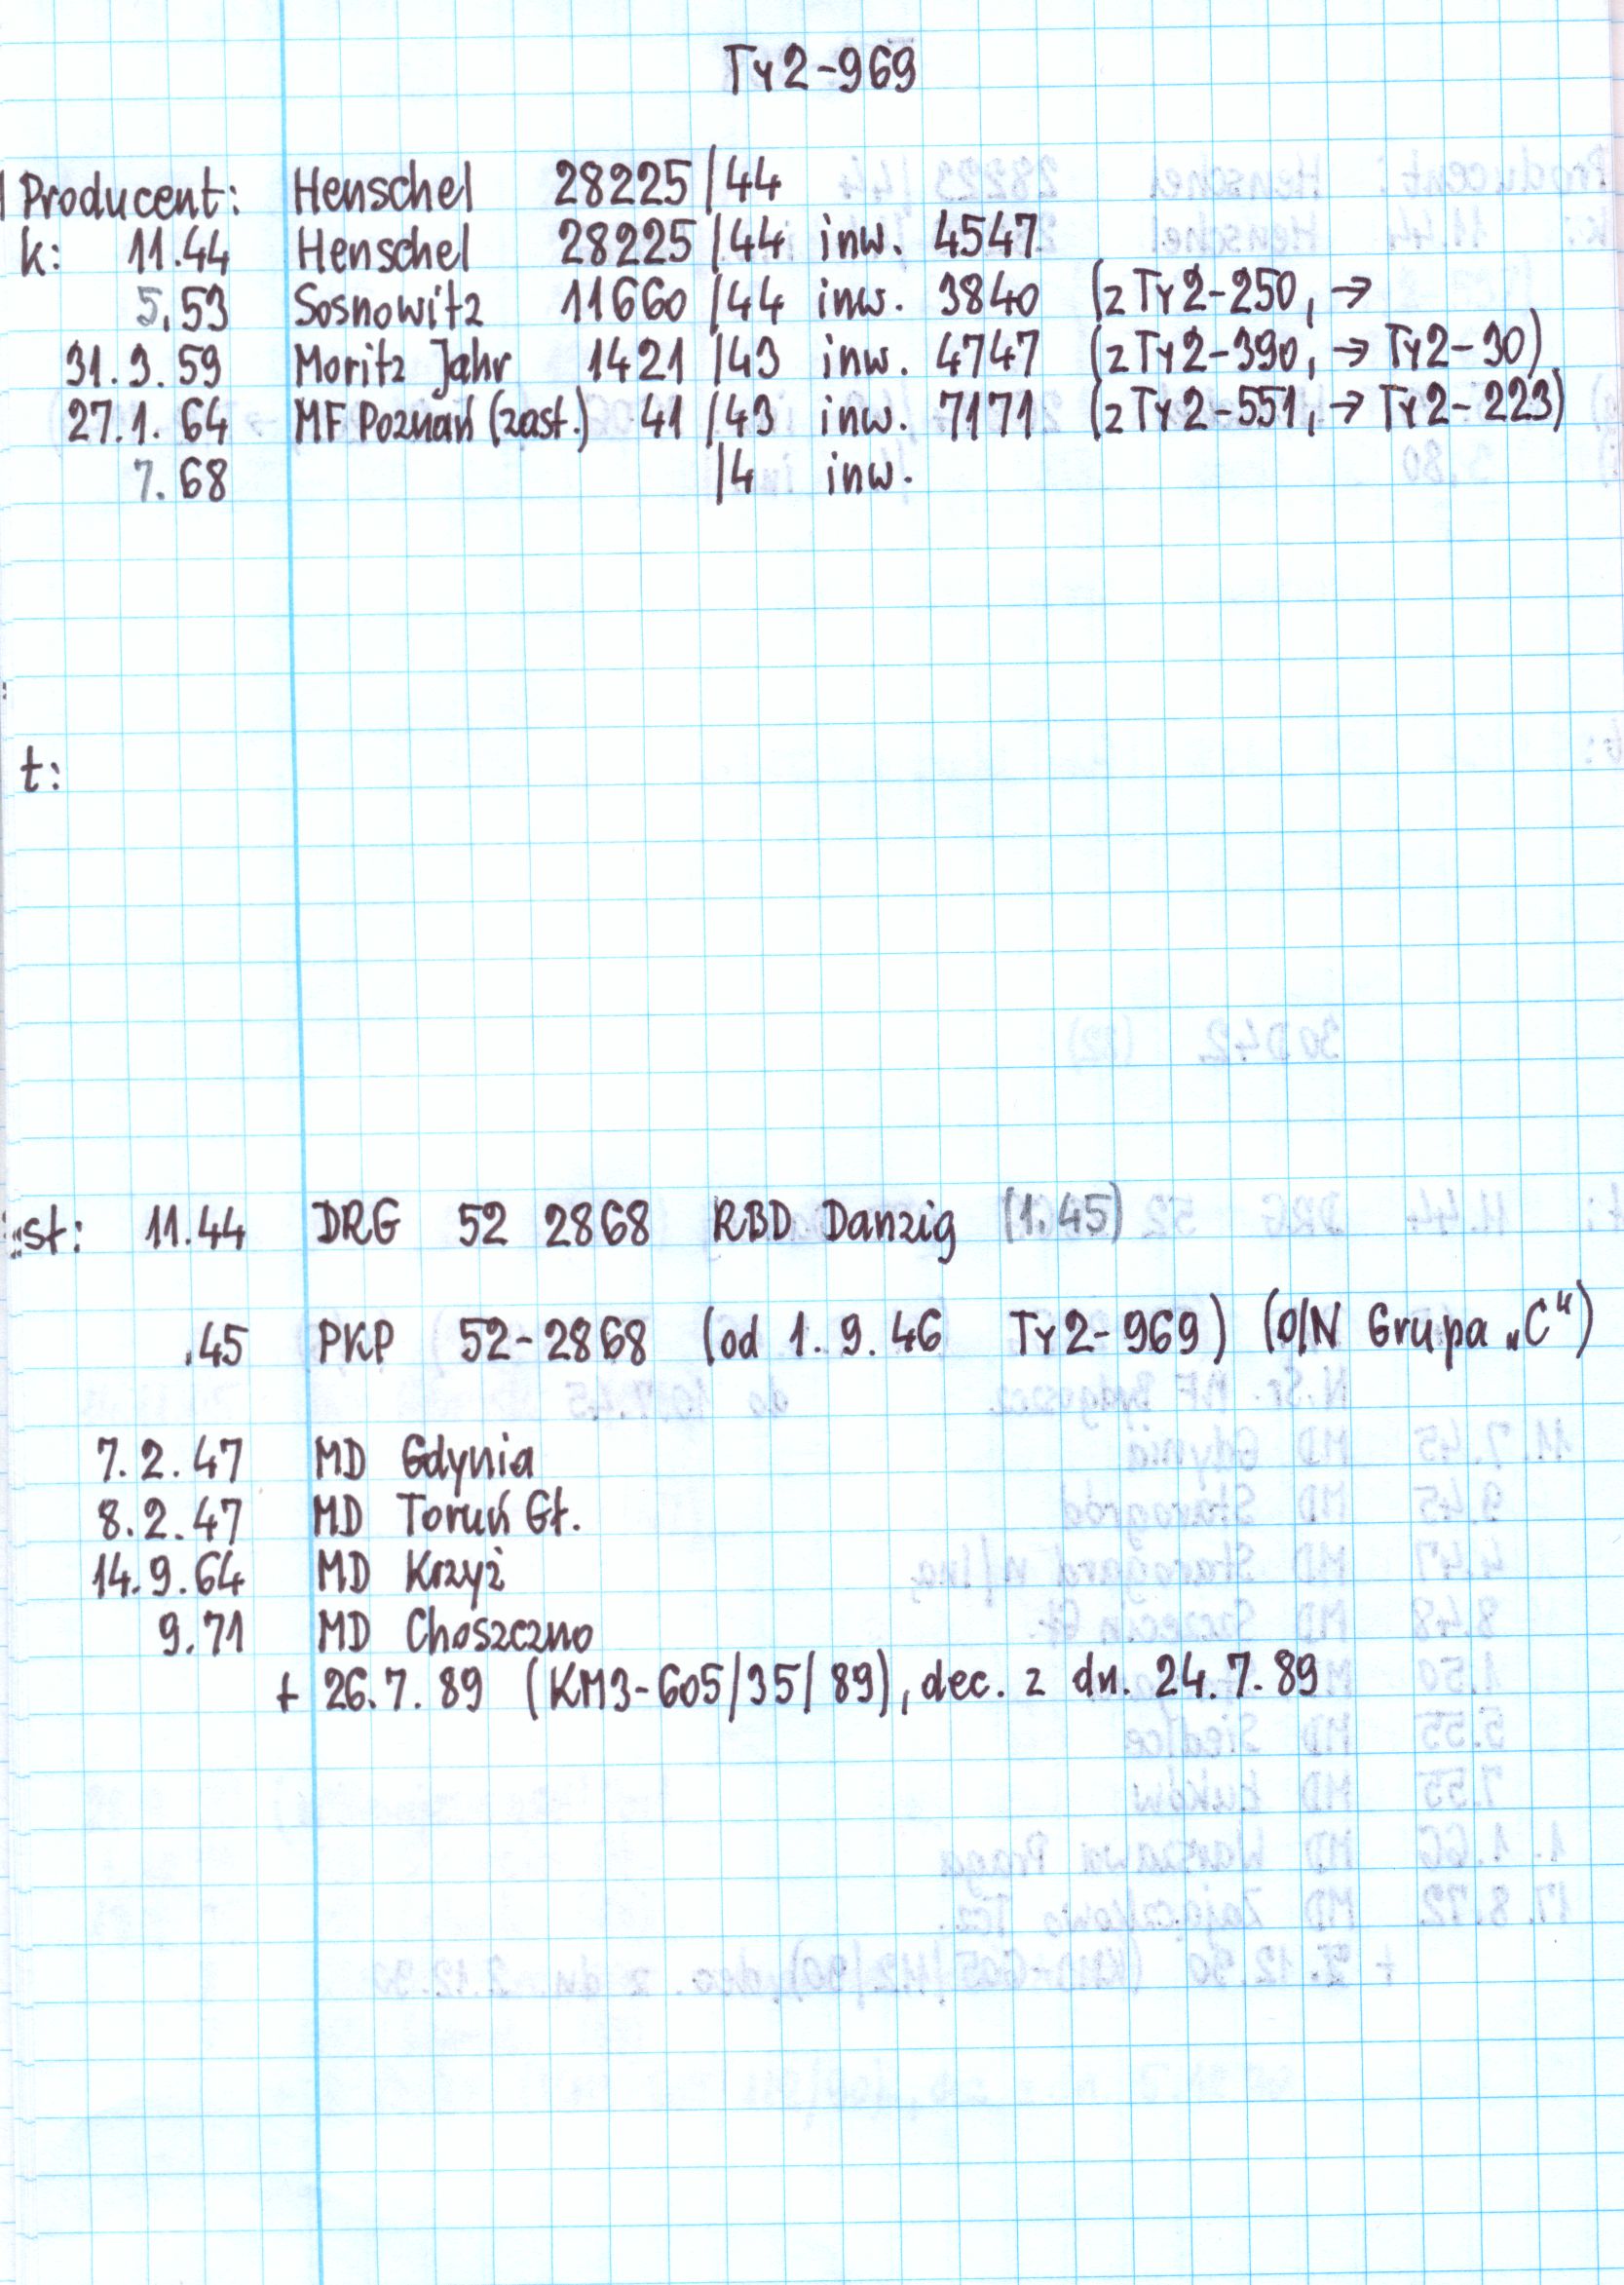 Ty2-969
Producent: Henschel 28225/44
k: 11.44 Henschel 28225/44 inw. 4547
5.53 Sosnowitz 11660/44 inw. 3840 (z Ty2-250, →
31.3.59 Moritz Jahr 1421/43 inw. 4747 (z Ty2-390, → Ty2-30)
27.1.64 MF Poznań (zast.) 41/43 inw. 7171 (z Ty2-551, → Ty2-223)
7.68 /4 inw.
t:
st: 11.44 DRG 52 2868 RBD Danzig (1.45)
.45 PKP 52-2868 (od 1.9.46 Ty2-969) (O/N Grupa „C")
7.2.47 MD Gdynia
8.2.47 MD Toruń Gł.
14.9.64 MD Krzyż
9.71 MD Choszczno
+ 26.7.89 (KM3-605/35/89), dec. z dn. 24.7.89